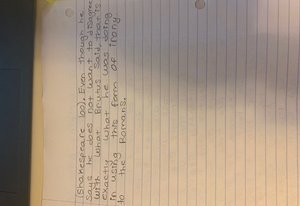 (Shakespeare 100). Even though he
says he does not want to disagree
with what Brutus said, that is
exactly what he was doing
in using this form of irony
to the Romans.